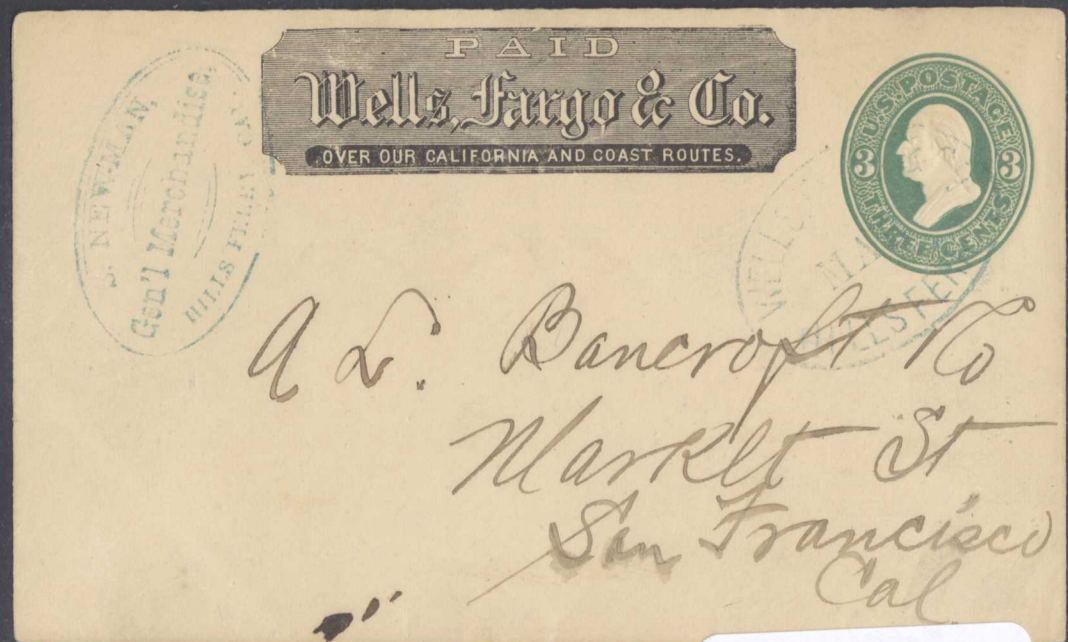 PAID
Wells, Fargo & Co.
OVER OUR CALIFORNIA AND COAST ROUTES.
S. NEWMAN,
Gen'l Merchandise,
HILLS FERRY, CAL
U.S. POSTAGE
3 3
THREE CENTS
WELLS
HILLS FER
A L. Bancroft & Co
Market St
San Francisco
Cal